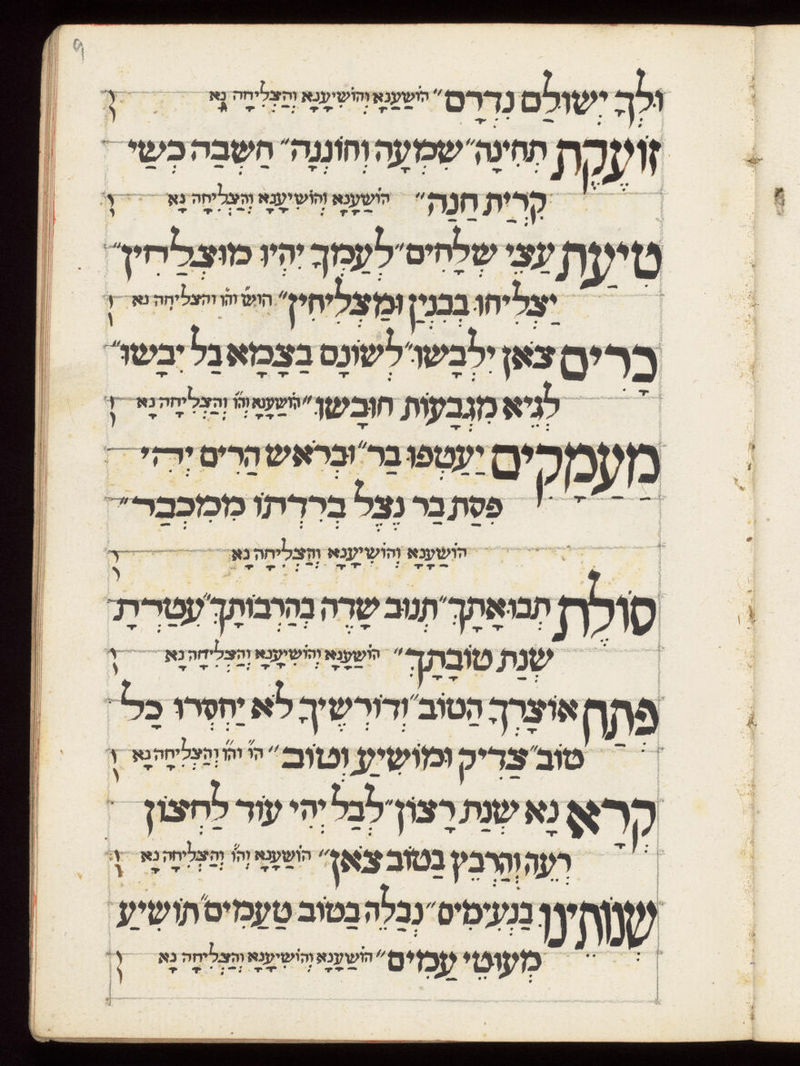 9
וּלְךָ יְשׁוּלַּם נִדְרָם" הוֹשַׁעֲנָא וְהוֹשִׁיעָנָא וְהַצְלִיחָה נָא
זוֹעֶקֶת תְּחִינָה" שִׁמְעָה וְחוֹנְנָה" חַשְּׁבָהּ כְּשַׁי
קִרְיַת חָנָה" הוֹשַׁעֲנָא וְהוֹשִׁיעָנָא וְהַצְלִיחָה נָא
טִיעַת עֲצֵי שְׁלָחִים" לְעַמְּךָ יִהְיוּ מוּצְלָחִין"
יַצְלִיחוּ בְּבִנְיָן וּמַצְלִיחִין" הוֹשׁ וְהוֹ וְהַצְלִיחָה נָא
כָּרִים צֹאן יִלְבָּשׁוּ" לְשׁוֹנָם בַּצָּמָא בַּל יִבָשׁוּ"
לְגֵיא מִגְּבָעוֹת חוּבָּשׁוּ" הוֹשַׁעֲנָא וְהוֹ וְהַצְלִיחָה נָא
מַעֲמַקִּים יַעַטְפוּ בַר" וּבְרֹאשׁ הָרִים יְהִי
פִסַּת בַּר נֶצֶל בְּרִדְתּוֹ מִמִּכְבַּר"
הוֹשַׁעֲנָא וְהוֹשִׁיעָנָא וְהַצְלִיחָה נָא
סוֹלֶת תְּבוּאָתָךְ" תְּנוּב שָׂדֶה בְּהַרְבּוֹתָךְ" עִטַּרְתָּ
שְׁנַת טוֹבָתָךְ" הוֹשַׁעֲנָא וְהוֹשִׁיעָנָא וְהַצְלִיחָה נָא
פְּתַח אוֹצָרְךָ הַטּוֹב" וְדוֹרְשֶׁיךָ לֹא יַחְסְרוּ כָל
טוֹב" צַדִּיק וּמוֹשִׁיעַ וְטוֹב" הוֹ וְהוֹ וְהַצְלִיחָה נָא
קְרָא נָא שְׁנַת רָצוֹן" לְבַל יְהִי עוֹד לַחְצוֹן
רְעֵה וְהַרְבֵּץ בְּטוֹב צֹאן" הוֹשַׁעֲנָא וְהוֹ וְהַצְלִיחָה נָא
שְׁנוֹתֵינוּ בַּנְּעִימִים" נְבַלֶּה בְּטוֹב טְעָמִים" תּוֹשִׁיעַ
מְעוּטֵי עַמִּים" הוֹשַׁעֲנָא וְהוֹשִׁיעָנָא וְהַצְלִיחָה נָא